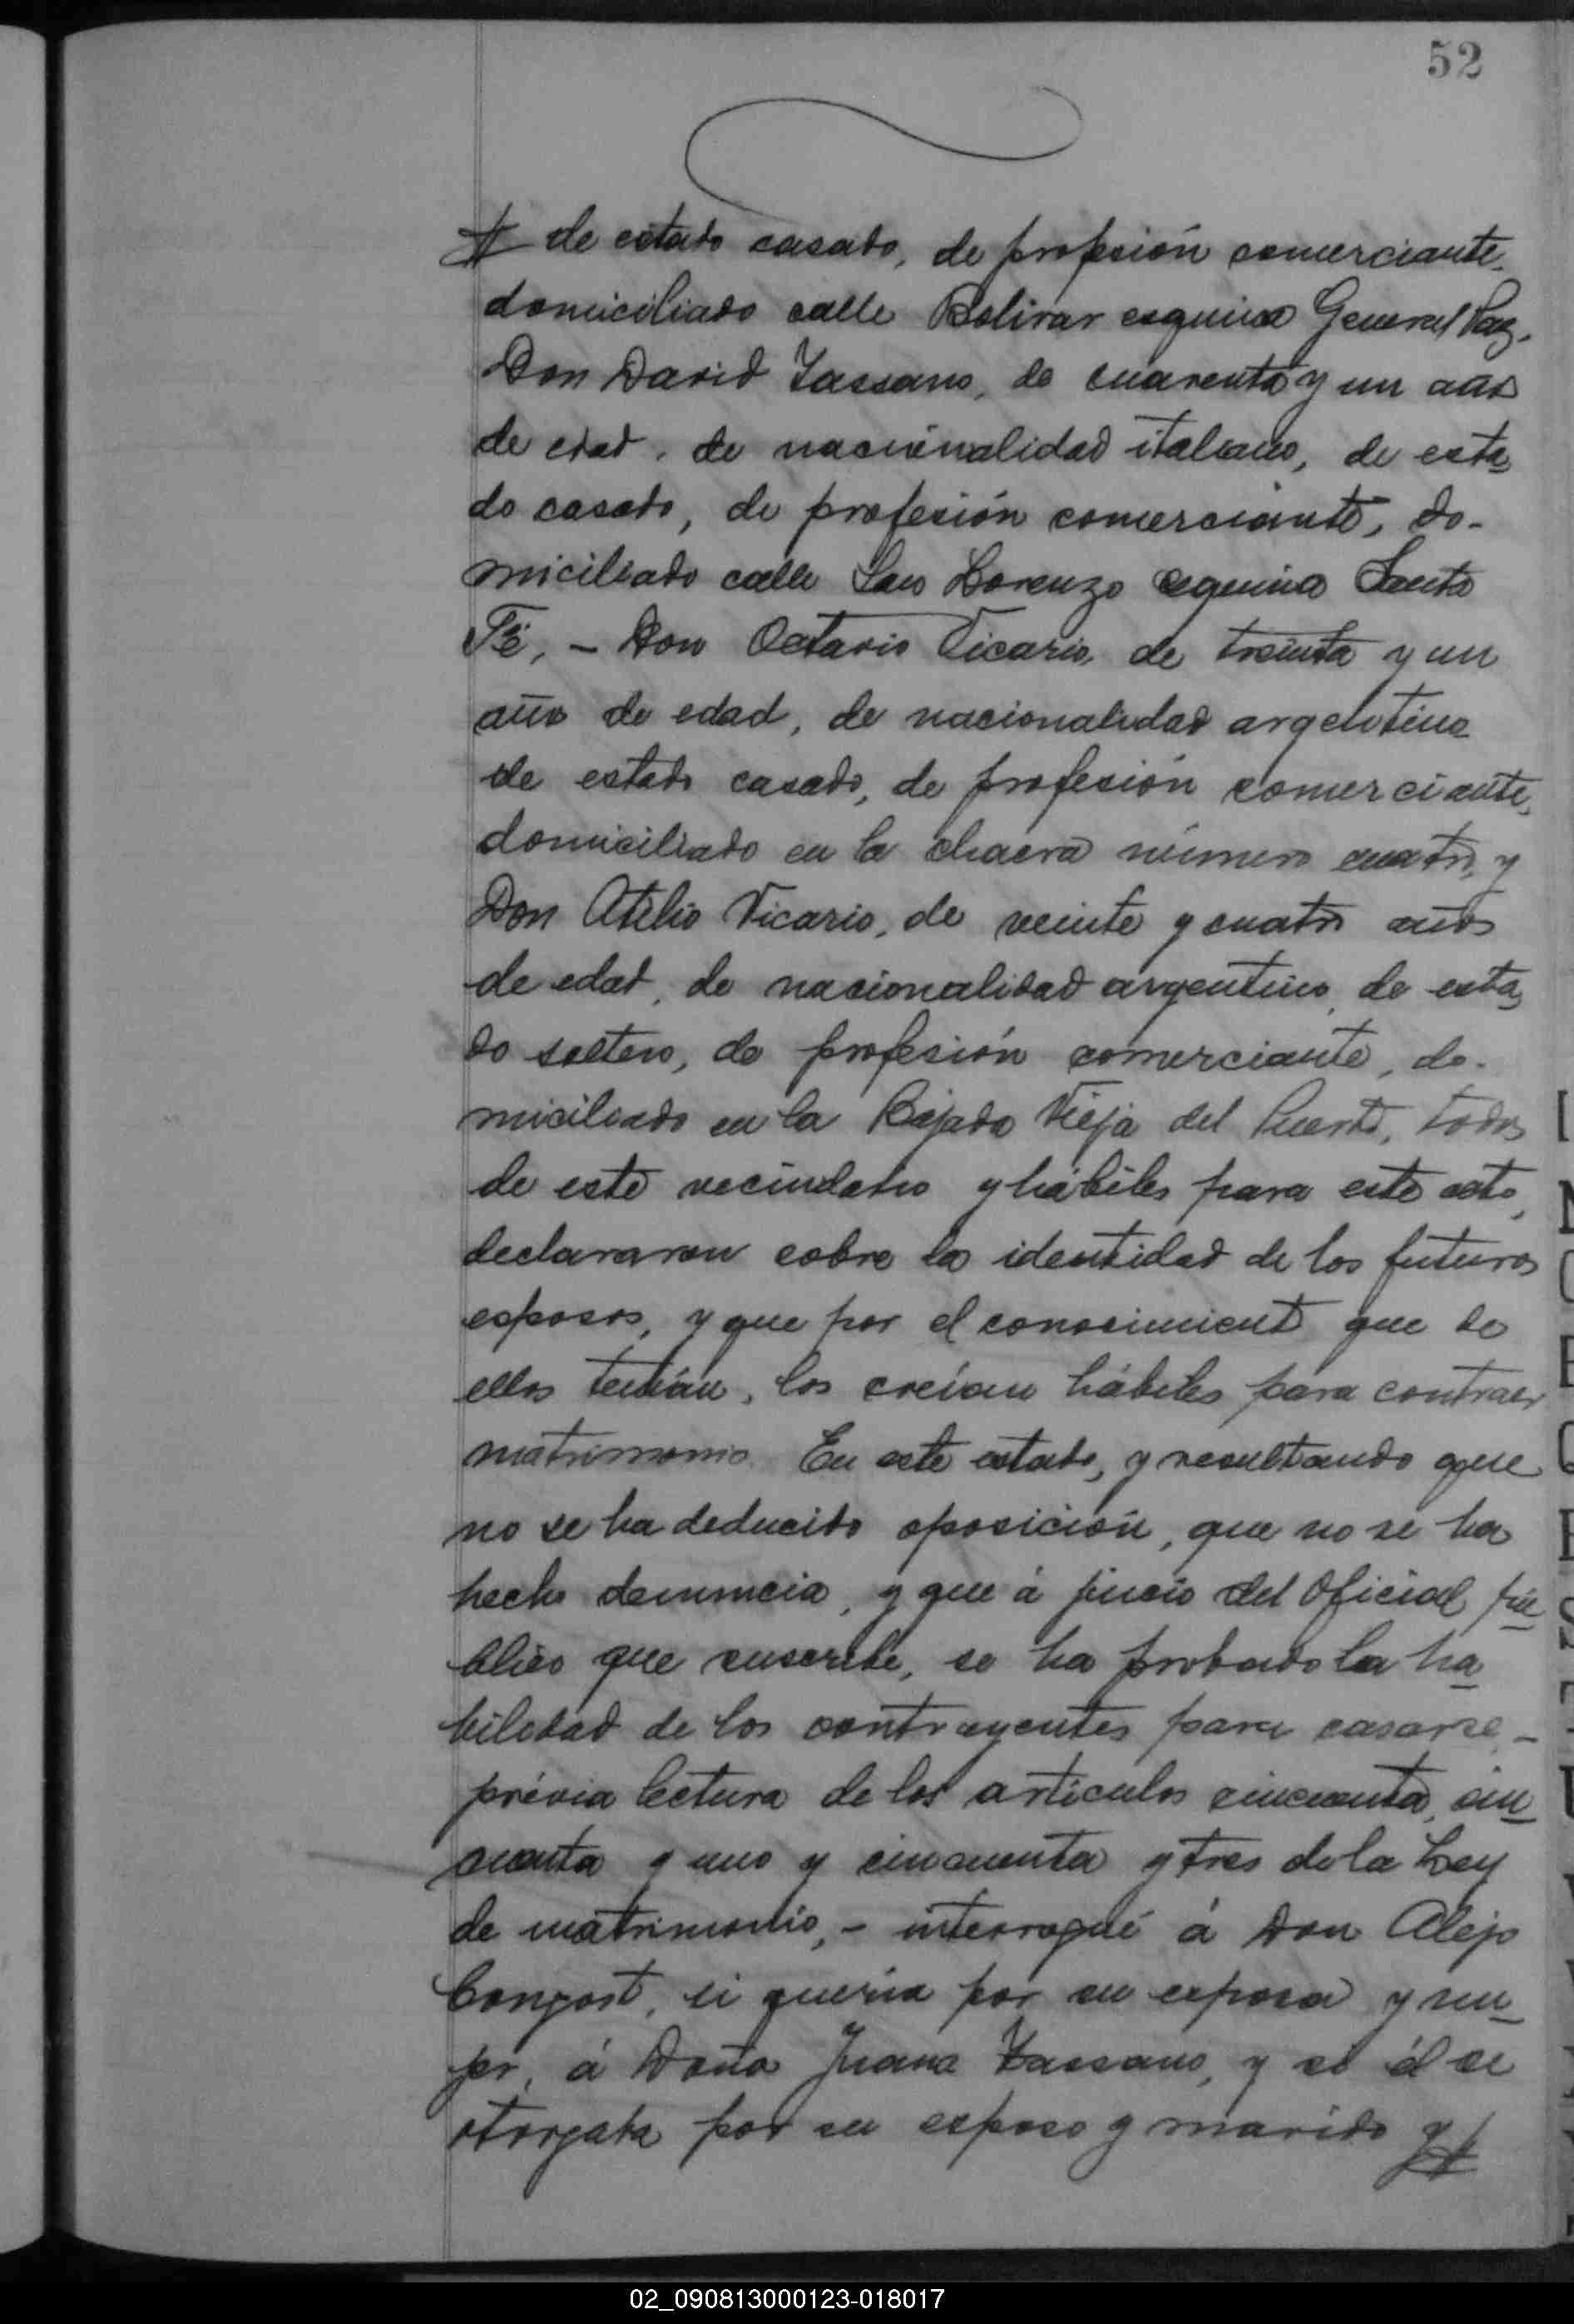 52
de estado casado, de profesión comerciante,
domiciliado calle Bolivar esquina General Paz.
Don David Tassano, de cuarenta y un año
de edad, de nacionalidad italiano, de esta
do casado, de profesión comerciante, do-
miciliado calle San Lorenzo esquina Santa
Fé, - Don Octavio Vicario, de treinta y un
año de edad, de nacionalidad argentino
de estado casado, de profesión comerciante,
domiciliado en la chacra número cuatro, y
Don Atilio Vicario, de veinte y cuatro años
de edad, de nacionalidad argentino, de esta
do soltero, de profesión comerciante, do-
miciliado en la Bajada Vieja del Puerto, todos
de este vecindario y hábiles para este acto,
declararon sobre la identidad de los futuros
esposos, y que por el conocimiento que de
ellos tenían, los creían hábiles para contraer
matrimonio. En este estado, y resultando que
no se ha deducido oposición, que no se ha
hecho denuncia, y que á juicio del Oficial pú
blico que suscribe, se ha probado la ha
bilidad de los contrayentes para casarse, -
prévia lectura de los artículos cincuenta, cin
cuenta y uno y cincuenta y tres de la Ley
de matrimonio, - interrogué á Don Alejo
Congost, si quería por su esposa y mu
jer, á Doña Juana Tassano, y si él se
otorgaba por su esposo y marido y
02_090813000123-018017